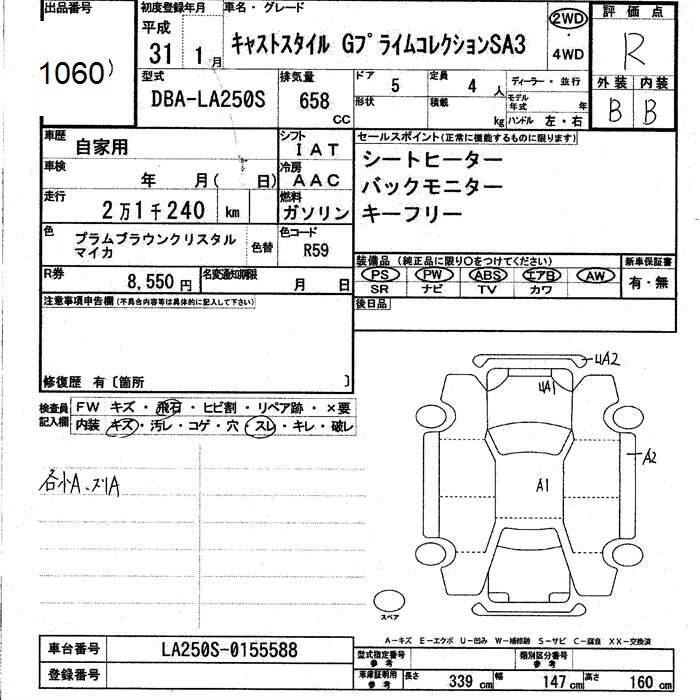 出品番号
1060)
初度登録年月
平成
31 1月
車名・グレード
キャストスタイル GプライムコレクションSA3
2WD
・
4WD
評価点
R
外装 内装
B B
型式
DBA-LA250S
排気量
658
CC
ドア 5
定員 4人
ディーラー・並行
形状
積載 kg
モデル年式 年
ハンドル 左・右
車歴
自家用
シフト
IAT
車検
年 月( 日)
冷房
AAC
走行
2万1千240 km
燃料
ガソリン
色
プラムブラウンクリスタル
マイカ
色替
色コード
R59
R券
8,550円
名変通知期限
月 日
セールスポイント(正常に機能するものに限ります)
シートヒーター
バックモニター
キーフリー
装備品 (純正品に限り○をつけてください)
新車保証書
PS PW ABS エアB AW
有・無
SR ナビ TV カワ
後日品
注意事項申告欄 (不具合内容等は具体的に記入して下さい)
修復歴 有〔箇所 〕
検査員
記入欄
FW キズ・飛石・ヒビ割・リペア跡・×要
内装 キズ・汚レ・コゲ・穴・スレ・キレ・破レ
各小A、スリA
4A2
4A1
A2
A1
スペア
A-キズ E-エクボ U-凹み W-補修跡 S-サビ C-腐食 XX-交換済
車台番号
LA250S-0155588
登録番号
型式指定番号
参考
類別区分番号
参考
車庫証明用
参考
長さ 339 cm
幅 147 cm
高さ 160 cm